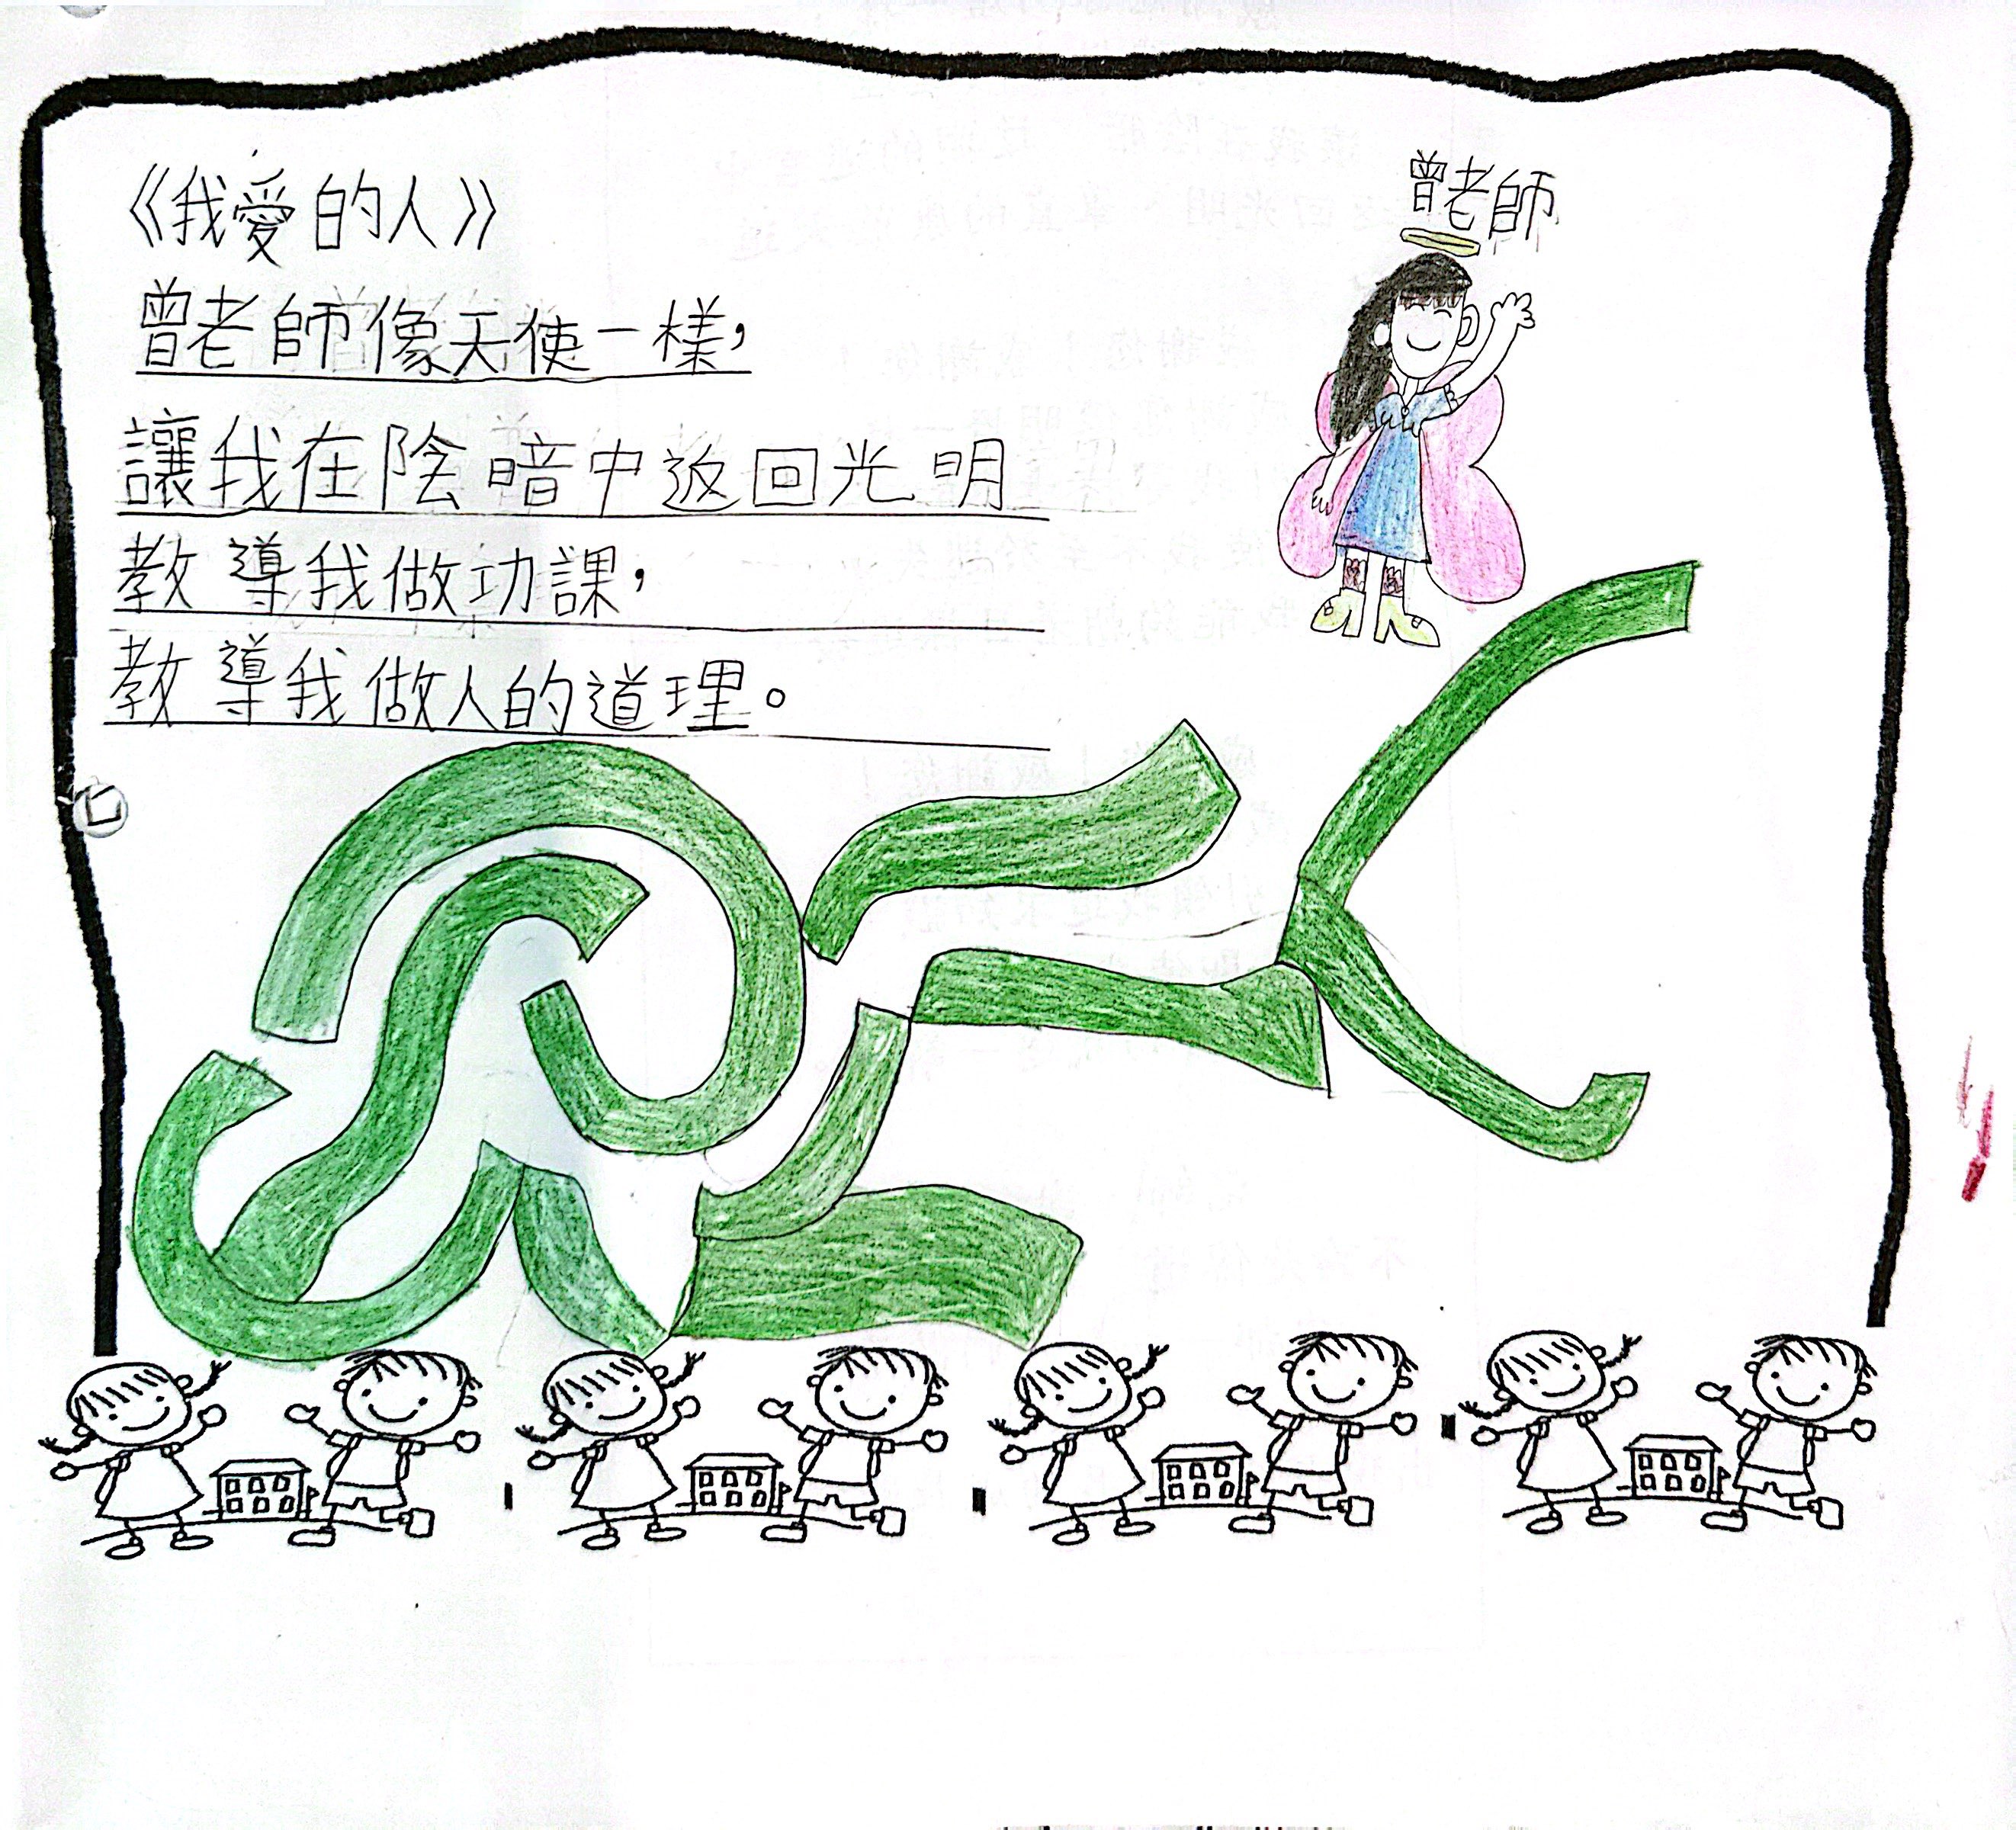 《我愛的人》
曾老師像天使一樣，
讓我在陰暗中返回光明
教導我做功課，
教導我做人的道理。
曾老師